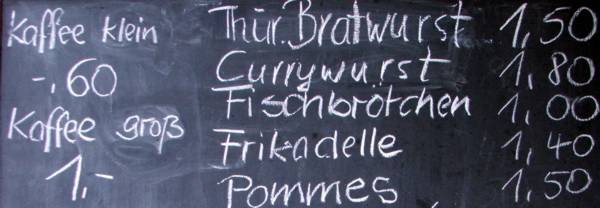 Kaffee klein
-.60
Kaffee groß
1,-
Thür. Bratwurst 1,50
Currywurst 1,80
Fischbrötchen 1,00
Frikadelle 1,40
Pommes 1,50